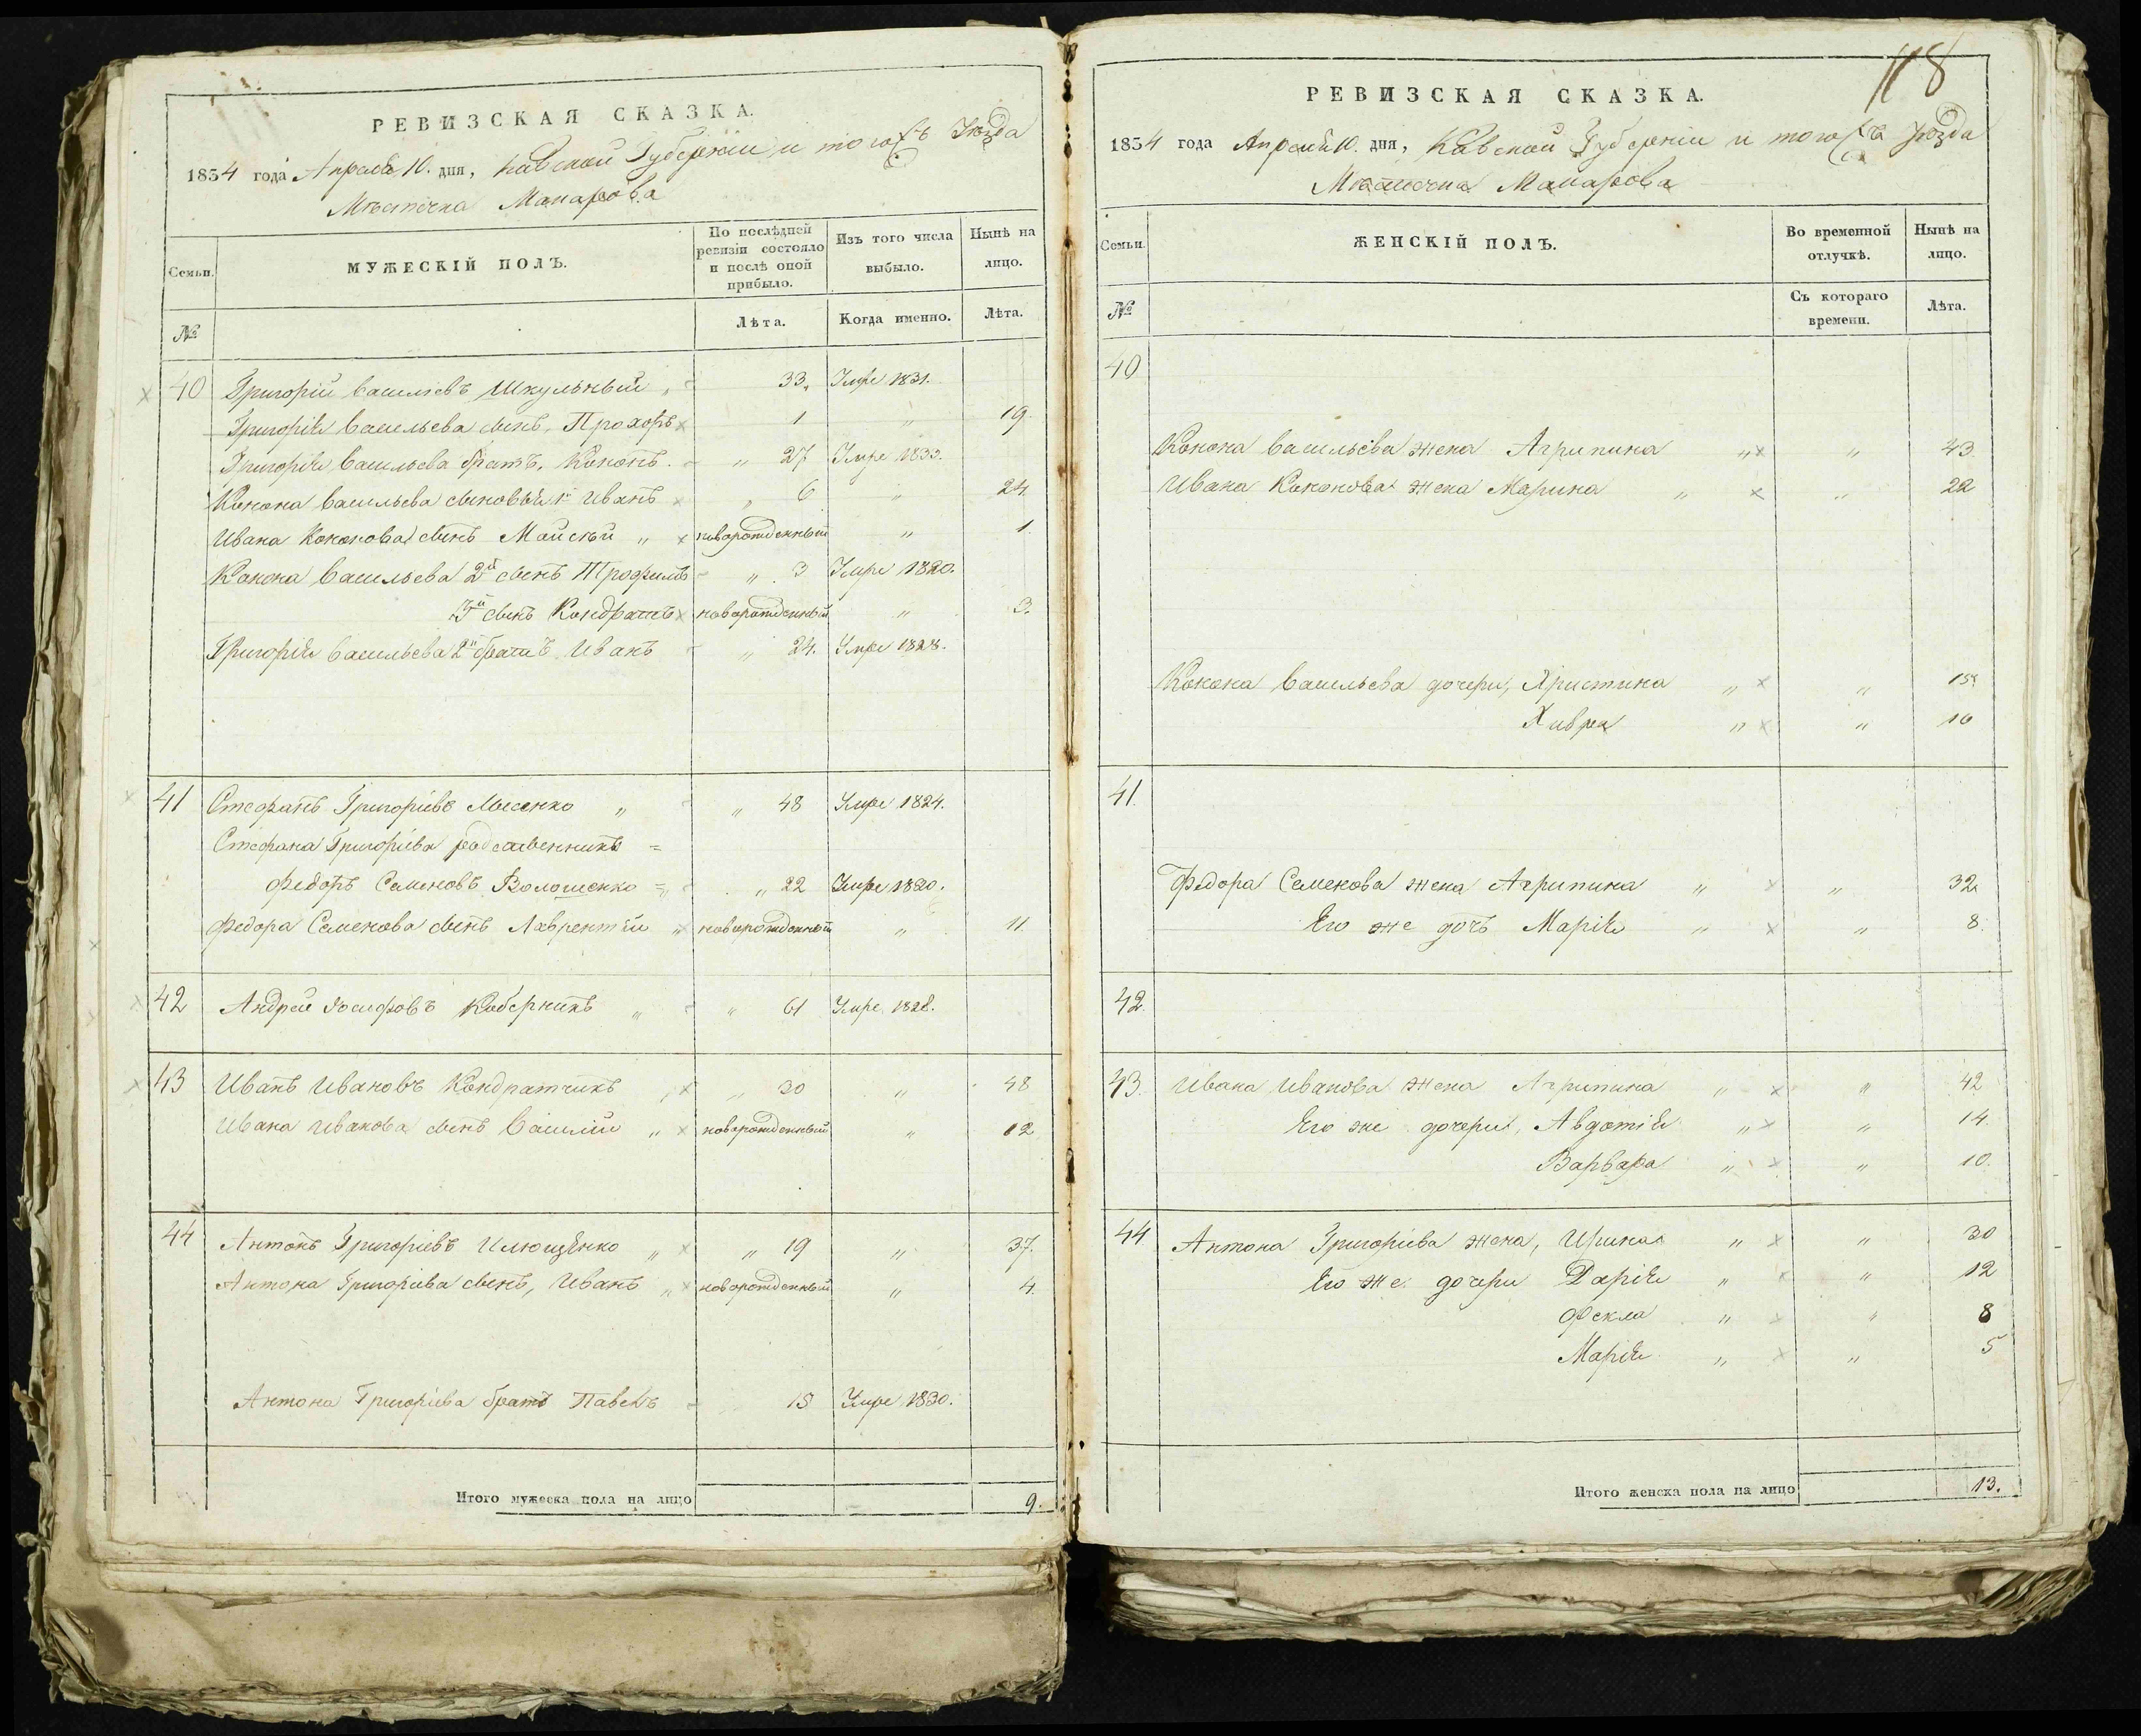 РЕВИЗСКАЯ СКАЗКА.
1834 года Апреля 10. дня, Кіевской Губерніи и тогожъ Уѣзда
Мѣстечка Макарова
Семьи.
МУЖЕСКІЙ ПОЛЪ.
По послѣдней ревизіи состояло и послѣ оной прибыло.
Изъ того числа выбыло.
Нынѣ на лицо.
№
Лѣта.
Когда именно.
Лѣта.
40 Григорій Васильевъ Шкульный „ 33. Умре 1831.
Григорія Васильева сынъ, Прохоръ 1 „ 19.
Григорія Васильева братъ, Кононъ. „ 27 Умре 1833.
Конона Васильева сыновья 1й Иванъ „ 6 „ 24.
Ивана Кононова сынъ Мойсей „ новорожденный „ 1.
Конона Васильева 2й сынъ Трофимъ „ 3 Умре 1820.
3й сынъ Кондратъ новорожденный „ 3.
Григорія Васильева 2й братъ Иванъ „ 24. Умре 1828.
41 Стефанъ Григоріевъ Мысенко „ „ 48 Умре 1824.
Стефана Григоріева родственникъ =
Федоръ Семеновъ Волошенко „ 22 Умре 1820.
Федора Семенова сынъ Лаврентій „ новорожденный „ 11.
42 Андрей Іосифовъ Коберникъ „ „ 61 Умре 1828.
43 Иванъ Ивановъ Кондратчикъ „ „ 30 „ 48
Ивана Иванова сынъ Василій „ новорожденный „ 12
44 Антонъ Григоріевъ Илющенко „ „ 19 „ 37.
Антона Григоріева сынъ, Иванъ „ новорожденный „ 4.
Антона Григоріева братъ Павелъ 15 Умре 1830.
Итого мужеска пола на лицо 9.
118
РЕВИЗСКАЯ СКАЗКА.
1834 года Апреля 10. дня, Кіевской Губерніи и тогожъ Уѣзда
Мѣстечка Макарова
Семьи.
ЖЕНСКІЙ ПОЛЪ.
Во временной отлучкѣ.
Нынѣ на лицо.
№
Съ котораго времени.
Лѣта.
40
Конона Васильева жена Агрипина „ „ 43.
Ивана Кононова жена Марина „ „ 22
Конона Васильева дочери, Христина „ „ 15
Хивря „ „ 10
41.
Федора Семенова жена Агрипина „ „ 32
Его же дочь Марія „ „ 8.
42.
43. Ивана Иванова жена Агрипина „ „ 42
Его же дочери, Авдотія „ „ 14.
Варвара „ „ 10.
44 Антона Григоріева жена, Ирина „ „ 30
Его же дочери Дарія „ „ 12
Фекла „ „ 8
Марія „ „ 5
Итого женска пола на лицо 13.